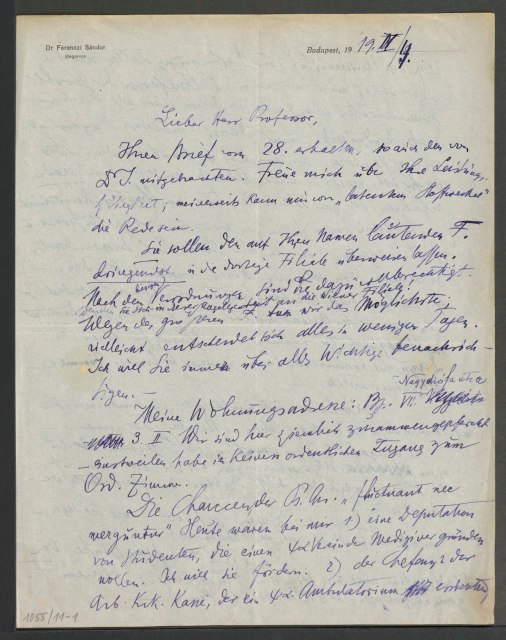 Dr Ferenczi Sándor
idegorvos
Budapest, 19 19. IV/4.
Lieber Herr Professor,
Ihren Brief vom 28. erhalten, so auch den von
Dr J. mitgebrachten. Freue mich über Ihre Leistungs-
fähigkeit; meinerseits kann nur von „latenten
die Rede sein.
Sie sollen den auf Ihren Namen lautenden F.
dringendst in die dortige Filiale überweisen lassen.
Nach den Verordnungen sind Sie dazu vollberechtigt.
Wenden Sie sich in dieser Angelegenheit an die Wiener Filiale!
Wegen des grösseren F. tun wir das Möglichste;
vielleicht entscheidet sich alles in wenigen Tagen.
Ich will Sie immer über alles Wichtige benachrich-
tigen. –
Meine Wohnungsadresse: Bp. VII. Nagydiófa utca
3. II. Wir sind hier ziemlich zusammengepfercht
– einstweilen habe ich keinen ordentlichen Zugang zum
Ord. Zimmer.
Die Chancen der Ps. An. „fluctuant nec
merguntur“. Heute waren bei mir 1) eine Deputation
von Studenten, die einen ψα Verein d. Mediziner gründen
wollen. Ich will sie fördern. 2) der Chefarzt der
Arb. Krk. Kasse, der ein ψα. Ambulatorium
1055/11-1